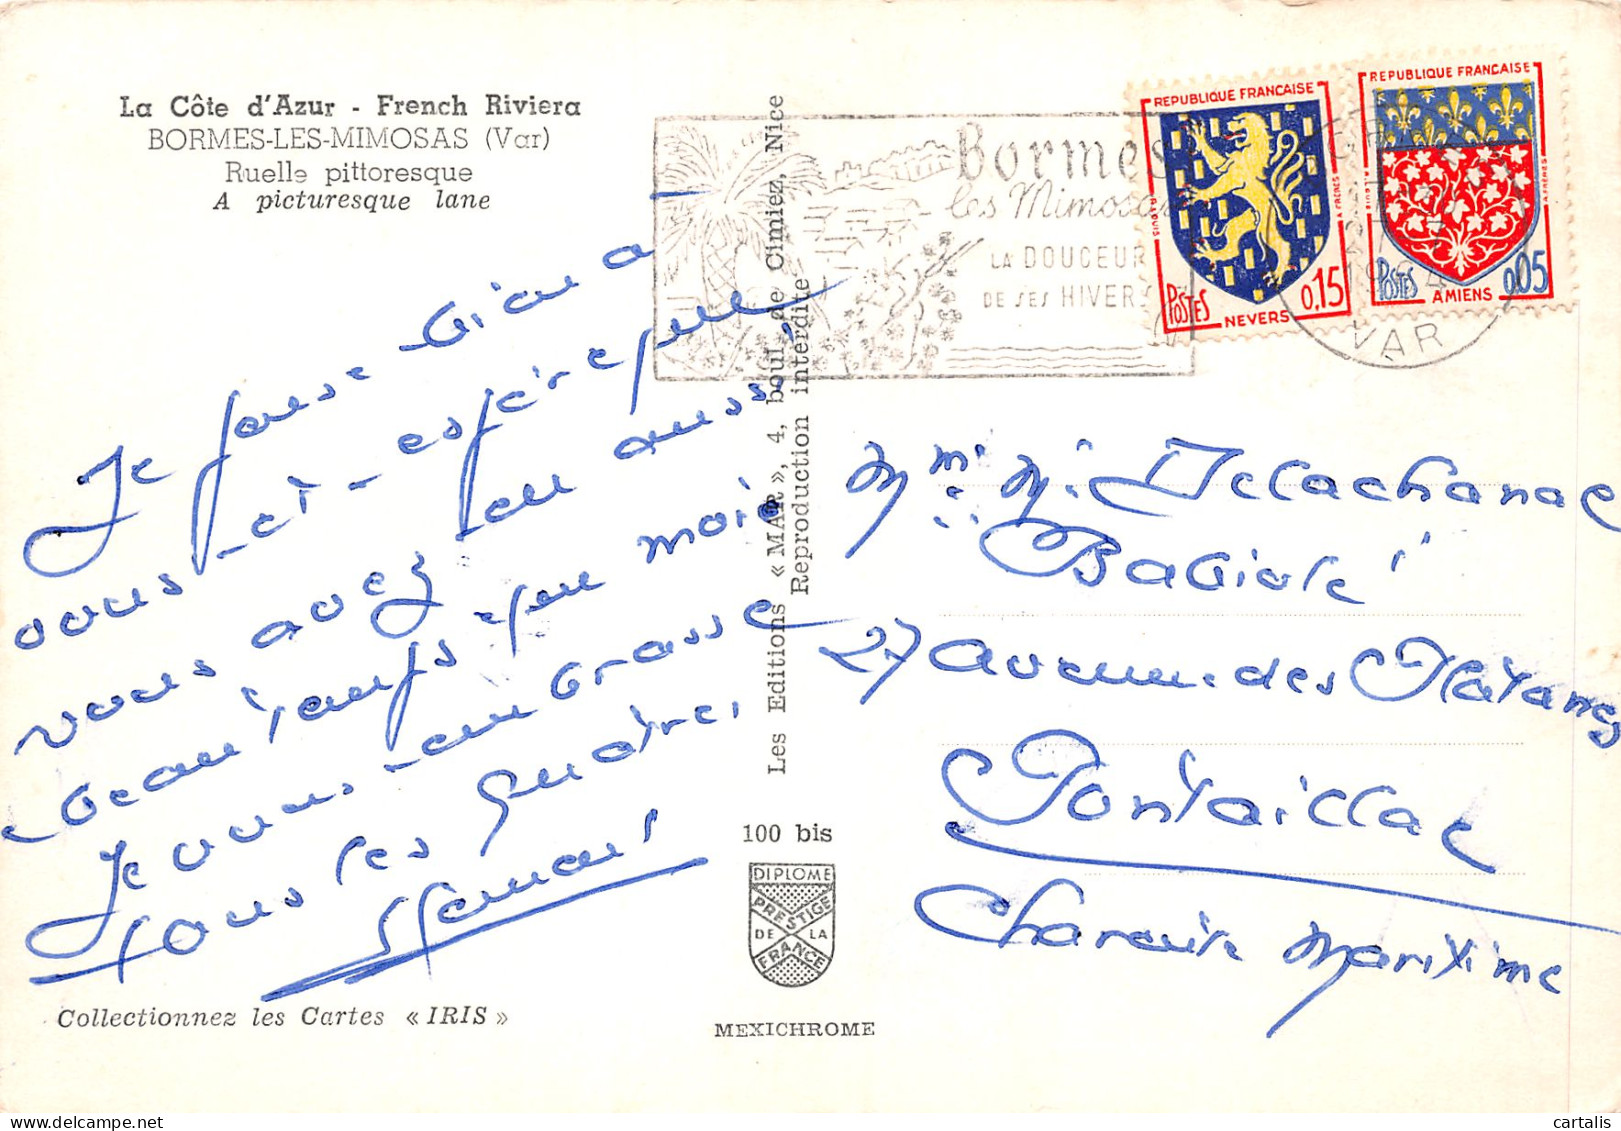 La Côte d'Azur - French Riviera
BORMES-LES-MIMOSAS (Var)
Ruelle pittoresque
A picturesque lane
Je pense bien à
vous et espère que
vous avez eu aussi
beau temps que moi
Je vous embrasse
tous les quatre.
Collectionnez les Cartes « IRIS »
Les Editions « MAR », 4, boul. de Cimiez, Nice
Reproduction interdite
100 bis
DIPLOME
PRESTIGE
DE LA
FRANCE
MEXICHROME
Bormes
les Mimosas
LA DOUCEUR
DE SES HIVERS
VAR
REPUBLIQUE FRANÇAISE
POSTES
0,15
NEVERS
REPUBLIQUE FRANÇAISE
POSTES
0,05
AMIENS
Mme Mr Delachanal
"Babiole"
27 avenue des Platanes
Pontaillac
Charente Maritime
cartalis